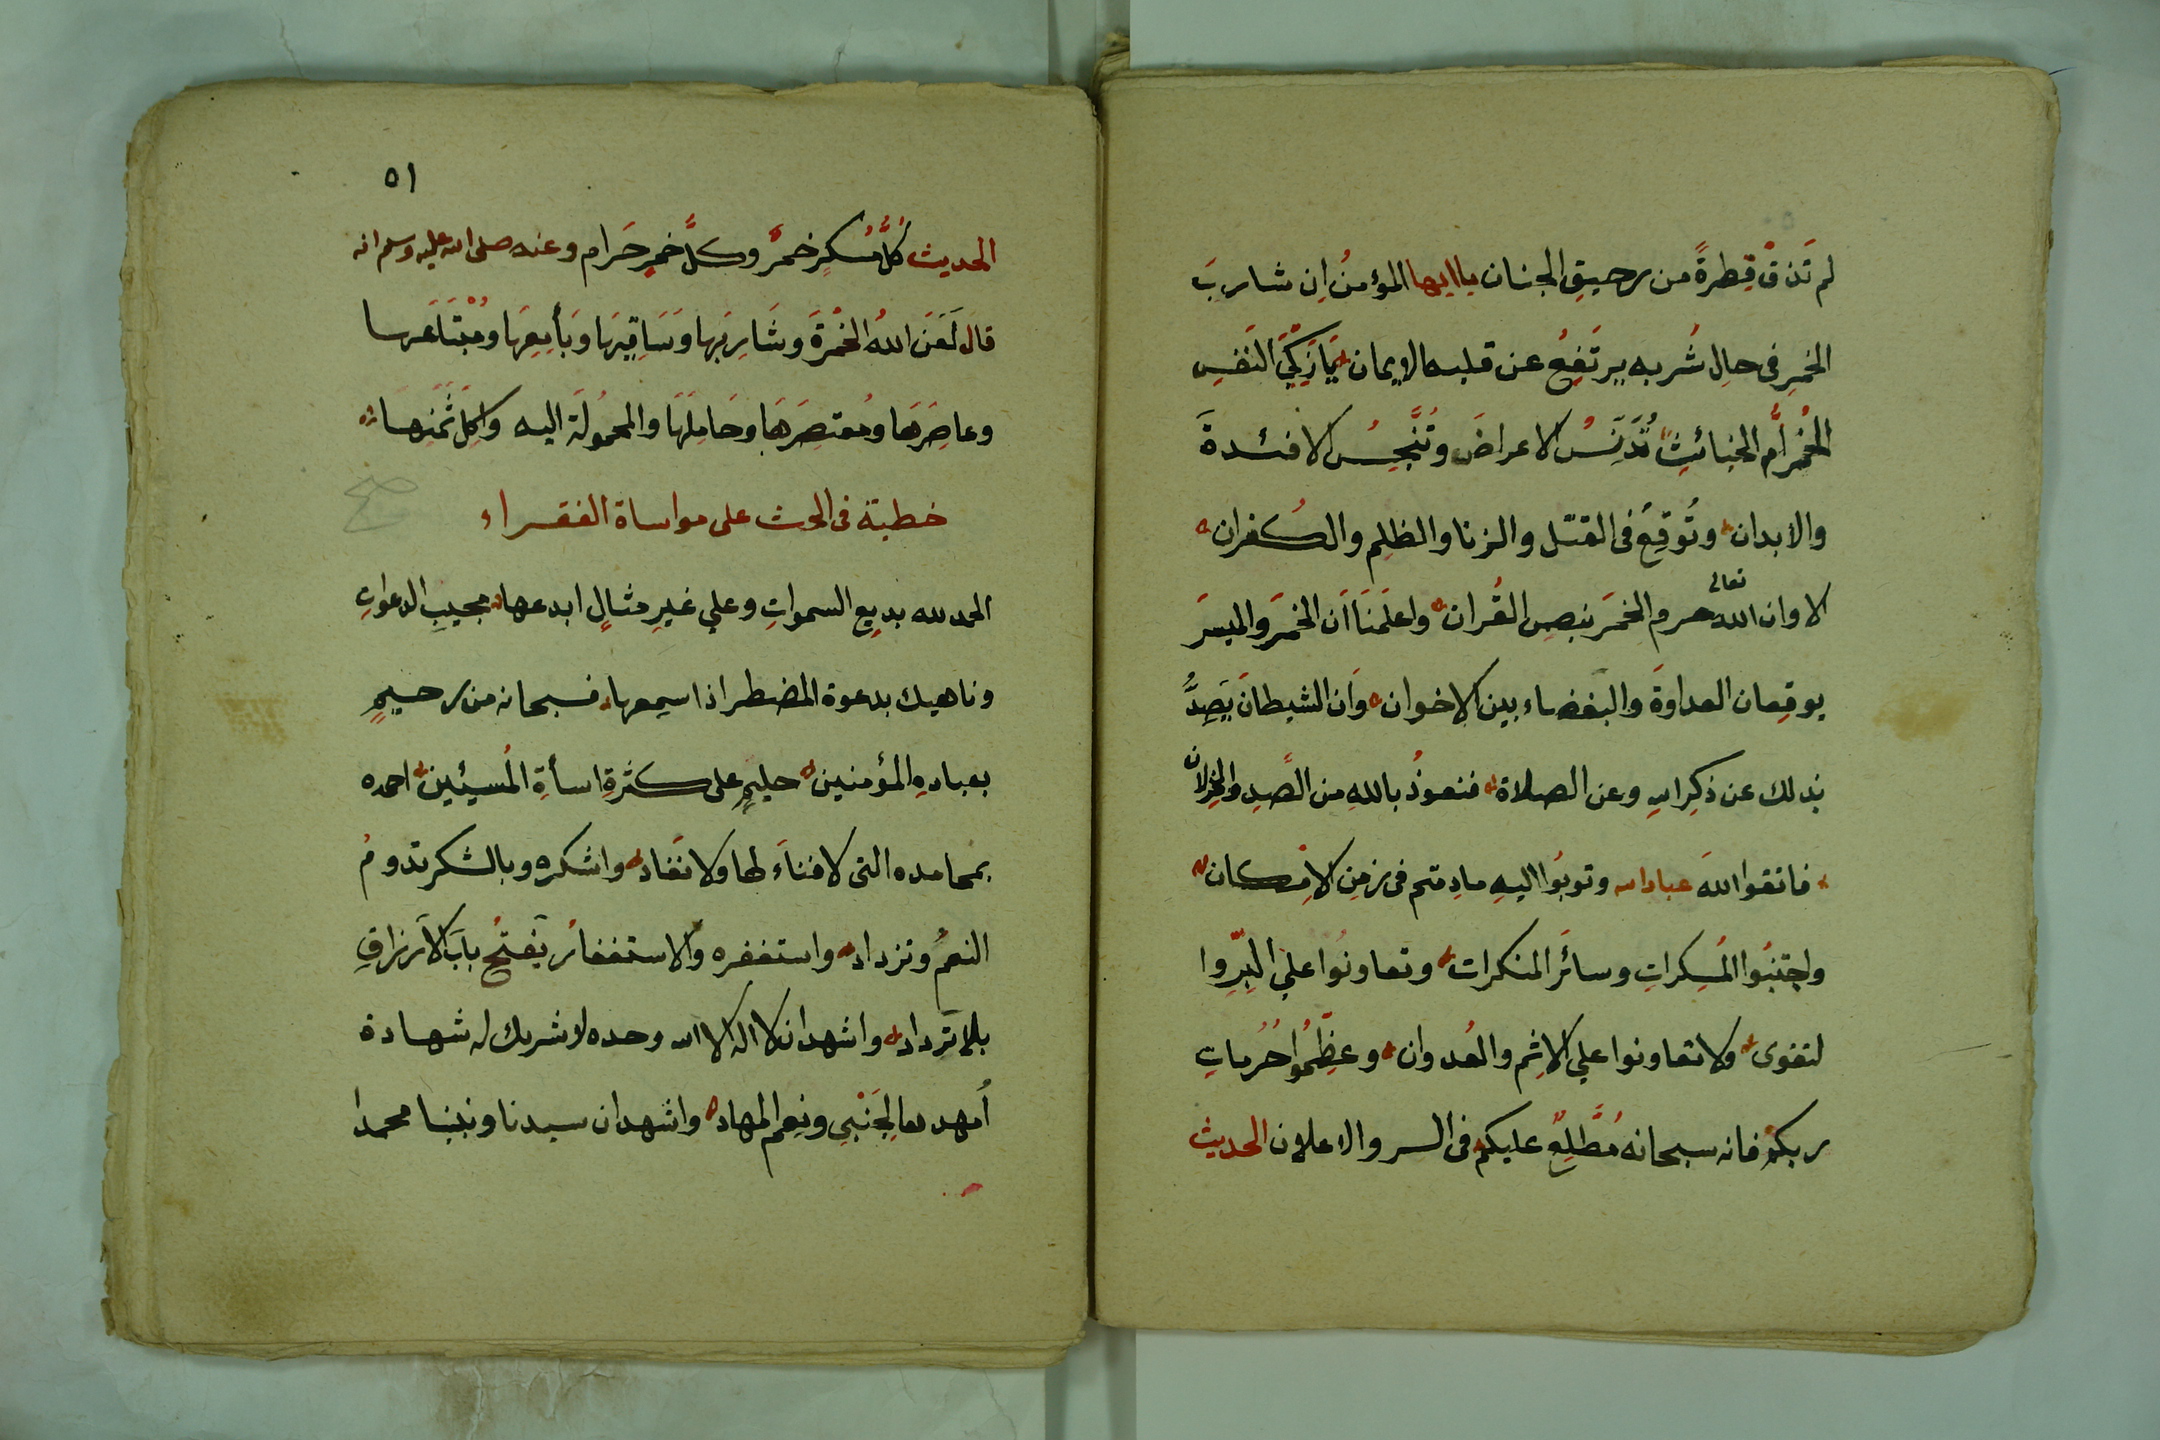 لم تَذقْ قِطرةً من رحيقِ الجنان ياايها المؤمنُ اِن شاربَ
الخمرِ فى حالِ شُربه يرتَفِعُ عن قلبه الايمان يَازَكِيَّ النَفسِ
الخمْرُ أُمُّ الخبائثِ تُدَنِّسُ الاعراضَ وتُنَجِّسُ الافئدةَ
والابدان وتُوقِعُ فى القتل والزنا والظلِم والكُفران
الا وان الله تعالى حرم الخمَر بنصِ القُران واعلَمَنَا اَن الخمَر والميسَر
يوقِعان العداوَةَ والبغضاء بين الاخوان وَان الشيطانَ يَصِدُّ
بذلك عن ذكِر الله وعن الصلاة فنعوذُ باللهِ من الصَّدِ والخِذلان
فاتقوا اللهَ عباد الله وتوبُوا اليهِ مادِمتم فى زمِن الاِمْكان
واجتنبُوا المُسِكراتِ وسائَر المنكرات وتعاونُوا علي البِرِّ وا
لتقوى ولا تعاونوا علي الاِثم والعُدوان وعظِّمُوا حُرُماتِ
ربكمْ فانه سبحانه مُطَّلِعٌ عليكم فى السر والاعلان الحديث
٥١
الحديث كُلُّ مُسْكِرٍ خمْرٌ وكلُّ خمرٍ حَرام وعنه صلى الله عليه وسلم انه
قال لَعَنَ اللهُ الخمْرَةَ وشَارِبَها وَسَاقِيَها وَبَأيِعِهَا ومُبْتَاعَها
وعاصِرَها ومُعتصِرَهَا وحَامِلَهَا والمحمُولَة اليه واكِلَ ثَمَنِها
خطبة فى الحث على مواساة الفقراء
صح
الحمد لله بديِع السمواتِ وعلي غيرِ مثالٍ ابدعها مجيبِ الدعواتِ
وناهيك بدعوة المضطر اذا سمِعها فسبحانه من رحيمٍ
بعبادهِ المؤمنين حليمٍ على كثرةِ اسأةِ المُسيئين احمده
بمحامده التى لا فناَء لها ولا نَفاد واشكره وبالشكر تدومُ
النعمُ وتزداد واستغفره والاستغفارُ يَفتحُ بابَ الاَرزاقِ
بلا تَرداد واشهد ان لا اله الا الله وحده لا شريك له شهادة
اُمهدها لِجَنْبِي ونِعم المهاد واشهد ان سيدنا ونبينا محمدا